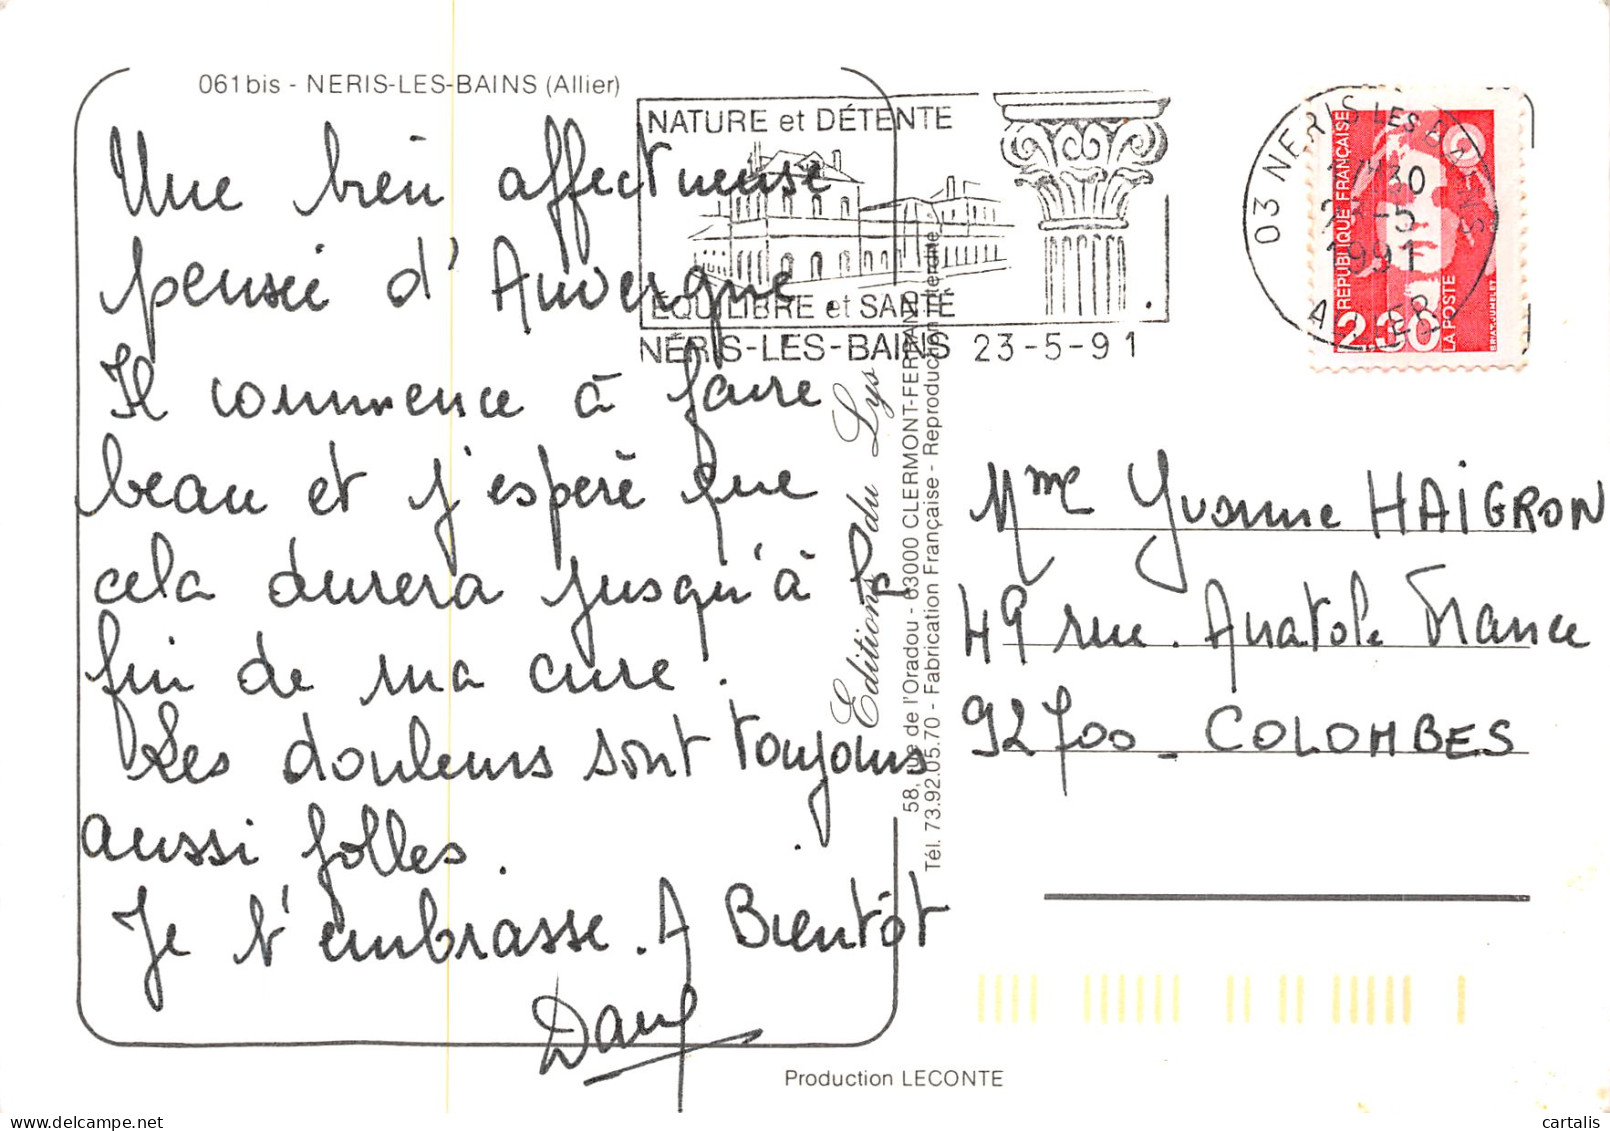 061 bis - NERIS-LES-BAINS (Allier)
Une bien affectueuse
pensée d'Auvergne
Il commence à faire
beau et j'espère que
cela durera jusqu'à la
fin de ma cure.
Les douleurs sont toujours
aussi folles.
Je t'embrasse. A Bientôt
Dany
NATURE et DÉTENTE
ÉQUILIBRE et SANTÉ
NÉRIS-LES-BAINS 23-5-91
03 NERIS LES BAINS
30
23-5
1991
ALLIER
REPUBLIQUE FRANÇAISE
2.30
LA POSTE
BRIAT-JUMELET
Editions du Lys
58, rue de l'Oradou - 63000 CLERMONT-FERRAND
Tél. 73.92.05.70 - Fabrication Française - Reproduction interdite
Mme Yvonne HAIGRON
49 rue Anatole France
92700 - COLOMBES
Production LECONTE
delcampe.net
cartalis